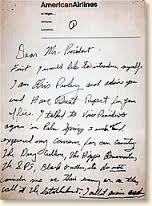 AmericanAirlines
In Flight
Altitude;
Location;
Dear Mr. President
First I would like to introduce myself.
I am Elvis Presley and admire you
and Have Great Respect for your
office. I talked to Vice President
Agnew in Palm Springs
and
expressed my concern for our country.
The Drug Culture, The Hippie Elements,
The SDS, Black Panthers, etc do not
consider me as their enemy or as they
call it the establishment. I call it